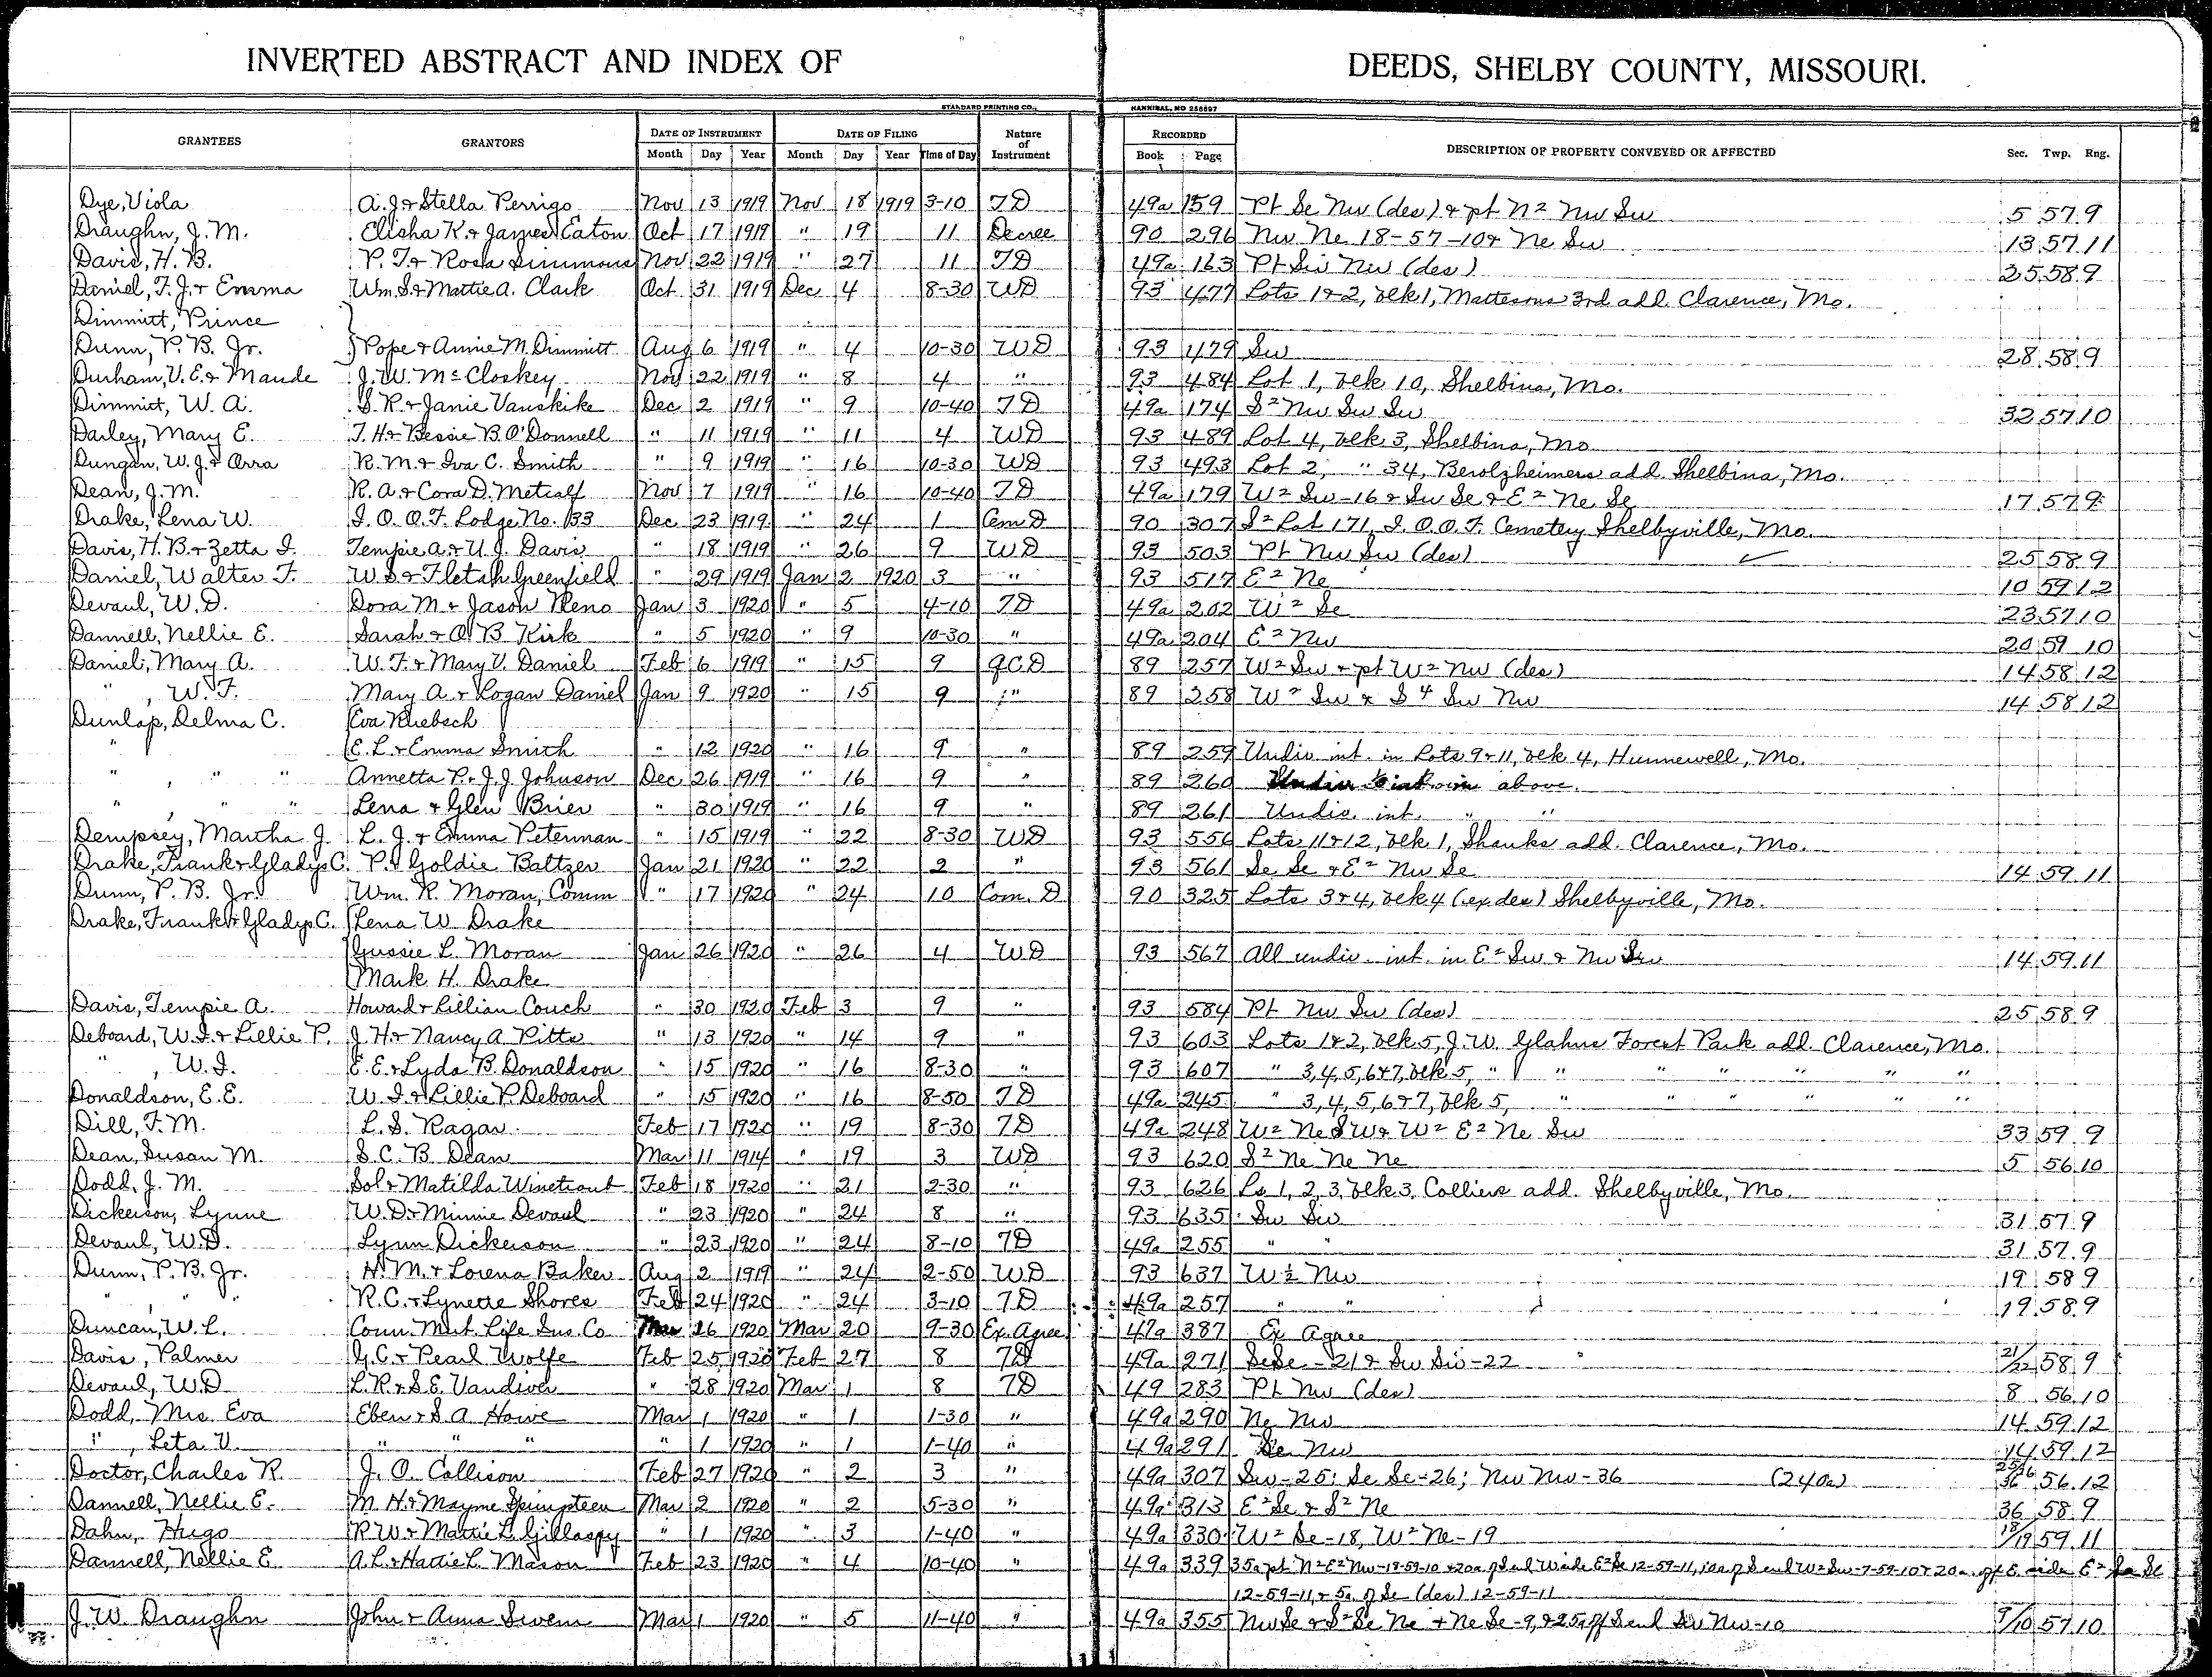 INVERTED ABSTRACT AND INDEX OF DEEDS, SHELBY COUNTY, MISSOURI.
STANDARD PRINTING CO., HANNIBAL, MO 258897
GRANTEES GRANTORS DATE OF INSTRUMENT DATE OF FILING Nature of Instrument RECORDED DESCRIPTION OF PROPERTY CONVEYED OR AFFECTED Sec. Twp. Rng.
Month Day Year Month Day Year Time of Day Book Page
Dye, Viola A. J. & Stella Perrigo Nov 13 1919 Nov 18 1919 3-10 TD 49a 159 Pt Se Nw (des) & pt N² Nw Sw 5 57 9
Draughn, J. M. Elisha K. & James Eaton Oct 17 1919 " 19 11 Decree 90 296 Nw Ne 18-57-10 & Ne Sw 13 57 11
Davis, H. B. P. T. & Rosa Simmons Nov 22 1919 " 27 11 TD 49a 163 Pt Sw Nw (des) 25 58 9
Daniel, T. J. & Emma Wm. S. & Mattie A. Clark Oct 31 1919 Dec 4 8-30 WD 93 477 Lots 1 & 2, Blk 1, Mattesons 3rd add. Clarence, Mo.
Dimmitt, Prince
Dunn, P. B. Jr. Pope & Annie M. Dimmitt Aug 6 1919 " 4 10-30 WD 93 479 Sw 28 58 9
Durham, V. E. & Maude J. W. McCloskey Nov 22 1919 " 8 4 " 93 484 Lot 1, Blk 10, Shelbina, Mo.
Dimmitt, W. A. S. R. & Janie Vanskike Dec 2 1919 " 9 10-40 TD 49a 174 S² Nw Sw Sw 32 57 10
Darley, Mary E. T. H. & Bessie B. O'Donnell " 11 1919 " 11 4 WD 93 489 Lot 4, Blk 3, Shelbina, Mo
Dungan, W. J. & Orra R. M. & Iva C. Smith " 9 1919 " 16 10-30 WD 93 493 Lot 2, " 34, Berolzheimers add. Shelbina, Mo.
Dean, J. M. R. A. & Cora D. Metcalf Nov 7 1919 " 16 10-40 TD 49a 179 W² Sw-16 & Sw Se & E² Ne Se 17 57 9
Drake, Lena W. I. O. O. F. Lodge No. 133 Dec 23 1919 " 24 1 Cem D 90 307 S² Lot 171, I. O. O. F. Cemetery Shelbyville, Mo.
Davis, H. B. & Zetta I. Tempie A. & U. J. Davis " 18 1919 " 26 9 WD 93 503 Pt Nw Sw (des) 25 58 9
Daniel, Walter T. W. S. & Fletah Greenfield " 29 1919 Jan 2 1920 3 " 93 517 E² Ne 10 59 12
Devaul, W. D. Dora M. & Jason Reno Jan 3 1920 " 5 4-10 TD 49a 202 W² Se 23 57 10
Dannell, Nellie E. Sarah & O. B. Kirk " 5 1920 " 9 10-30 " 49a 204 E² Nw 20 59 10
Daniel, Mary A. W. T. & Mary V. Daniel Feb 6 1919 " 15 9 QCD 89 257 W² Sw & pt W² Nw (des) 14 58 12
" , W. T. Mary A. & Logan Daniel Jan 9 1920 " 15 9 " 89 258 W² Sw & S 4 Sw Nw 14 58 12
Dunlap, Delma C. Eva Ruebsch
" E. L. & Emma Smith " 12 1920 " 16 9 " 89 259 Undiv int. in Lots 9 & 11, Blk 4, Hunnewell, Mo.
" , " " Annetta P. & J. J. Johnson Dec 26 1919 " 16 9 " 89 260 above.
" , " " Lena & Glen Brier " 30 1919 " 16 9 " 89 261 Undiv. int. " "
Dempsey, Martha J. L. J. & Emma Peterman " 15 1919 " 22 8-30 WD 93 556 Lots 11 & 12, Blk 1, Shanks add. Clarence, Mo.
Drake, Frank & Gladys C. P. & Goldie Baltzer Jan 21 1920 " 22 2 " 93 561 Se Se & E² Nw Se 14 59 11
Dunn, P. B. Jr. Wm. R. Moran, Comm " 17 1920 " 24 10 Com. D 90 325 Lots 3 & 4, Blk 4 (ex des) Shelbyville, Mo.
Drake, Frank & Gladys C. Lena W. Drake
Gussie L. Moran Jan 26 1920 " 26 4 WD 93 567 All undiv. int. in E² Sw & Nw Sw 14 59 11
Mark H. Drake
Davis, Tempie A. Howard & Lillian Couch " 30 1920 Feb 3 9 " 93 584 Pt Nw Sw (des) 25 58 9
Deboard, W. I. & Lillie P. J. H. & Nancy A. Pitts " 13 1920 " 14 9 " 93 603 Lots 1 & 2, Blk 5, J. W. Glahns Forest Park add. Clarence, Mo.
" , W. I. E. E. & Lyda B. Donaldson " 15 1920 " 16 8-30 " 93 607 " 3, 4, 5, 6 & 7, Blk 5, " " " " " " "
Donaldson, E. E. W. I. & Lillie P. Deboard " 15 1920 " 16 8-50 TD 49a 245 " 3, 4, 5, 6 & 7, Blk 5, " " " " " "
Dill, F. M. L. S. Ragan Feb 17 1920 " 19 8-30 TD 49a 248 W² Ne S W & W² E² Ne Sw 33 59 9
Dean, Susan M. S. C. B. Dean Mar 11 1914 " 19 3 WD 93 620 S² Ne Ne Ne 5 56 10
Dodd, J. M. Sol & Matilda Winetraub Feb 18 1920 " 21 2-30 " 93 626 Ls 1, 2, 3, Blk 3, Colliers add. Shelbyville, Mo.
Dickerson, Lynne W. D. & Minnie Devaul " 23 1920 " 24 8 " 93 635 Sw Sw 31 57 9
Devaul, W. D. Lynn Dickerson " 23 1920 " 24 8-10 TD 49a 255 " " 31 57 9
Dunn, P. B. Jr. H. M. & Lorena Baker Aug 2 1919 " 24 2-50 WD 93 637 W½ Nw 19 58 9
" " " R. C. & Lynette Shores Feb 24 1920 " 24 3-10 TD 49a 257 " " 19 58 9
Duncan, W. L. Conn. Mut. Life Ins. Co Mar 16 1920 Mar 20 9-30 Ex. Agree 47a 387 Ex. Agree
Davis, Palmer G. C. & Pearl Wolfe Feb 25 1920 Feb 27 8 TD 49a 271 Se Se - 21 & Sw Sw - 22 21/22 58 9
Devaul, W. D. L. R. & S. E. Vandiver " 28 1920 Mar 1 8 TD 49 283 Pt Nw (des) 8 56 10
Dodd, Mrs. Eva Eben & S. A. Howe Mar 1 1920 " 1 1-30 " 49a 290 Ne Nw 14 59 12
" , Leta V. " " " " 1 1920 " 1 1-40 " 49a 291 Se Nw 14 59 12
Doctor, Charles R. J. O. Collison Feb 27 1920 " 2 3 " 49a 307 Sw-25; Se Se-26; Nw Nw-36 (240a) 25 26 36 56 12
Dannell, Nellie E. M. H. & Mayme Spimpteen Mar 2 1920 " 2 5-30 " 49a 313 E² Se & S² Ne 36 58 9
Dahn, Hugo R. W. & Mattie L. Gillaspy " 1 1920 " 3 1-40 " 49a 330 W² Se-18, W² Ne-19 18/19 59 11
Dannell, Nellie E A. L. & Hattie L. Mason Feb 23 1920 " 4 10-40 " 49a 339 35a pt N² E² Nw-18-59-10 & 20a of S end W side E² Se 12-59-11, 10a of S end W² Sw-7-59-10 & 20a. off E. side E² Se
12-59-11, & 5a of Se (des) 12-59-11
J. W. Draughn John & Anna Swem Mar 1 1920 " 5 11-40 " 49a 355 Nw Se & S² Se Ne & Ne Se-9, & 25a off S end Sw Nw-10 9/10 57 10